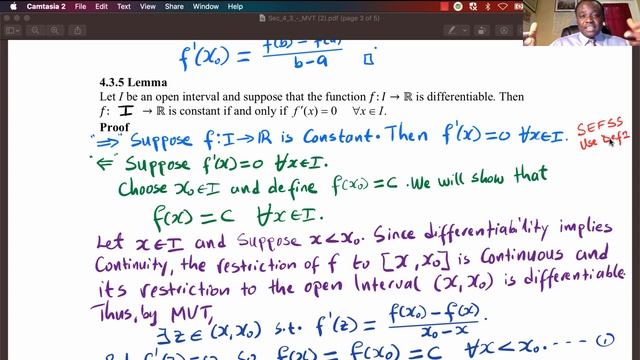 Camtasia 2 File Edit View Help
Sec_4_3_-_MVT (2).pdf (page 3 of 5)
f'(x₀) = f(b) - f(a) / b-a □
4.3.5 Lemma
Let I be an open interval and suppose that the function f: I → ℝ is differentiable. Then
f: I → ℝ is constant if and only if f'(x) = 0 ∀x∈I.
Proof
"⇒" Suppose f: I→ℝ is Constant. Then f'(x)=0 ∀x∈I.
SEFSS
Use Def2
"⇐" Suppose f'(x)=0 ∀x∈I.
Choose x₀∈I and define f(x₀)=C. We will show that
f(x) = C ∀x∈I.
Let x∈I and suppose x<x₀. Since differentiability implies
Continuity, the restriction of f to [x,x₀] is Continuous and
its restriction to the open Interval (x,x₀) is differentiable.
Thus, by MVT,
∃z∈(x,x₀) s.t. f'(z) = f(x₀)-f(x) / x₀-x
f(x) = f(x₀) = C ∀x<x₀ ----- ①